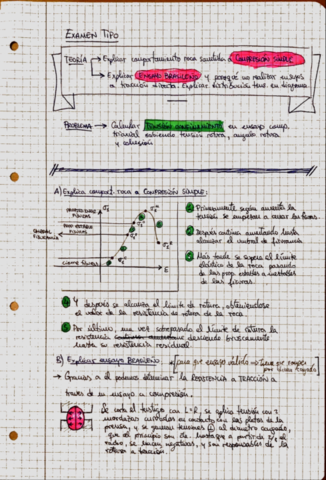 EXAMEN TIPO
TEORÍA → Explicar comportamiento roca sometida a COMPRESIÓN SIMPLE
→ Explicar ENSAYO BRASILEÑO y porqué no realizar ensayo
a tracción directa. Explicar distribución tens. en diagrama
PROBLEMA → Calcular TENSIÓN CONFINAMIENTO en ensayo comp.
triaxial sabiendo tensión rotura, angulo rotura
y cohesión
A) Explica comport. roca a COMPRESIÓN SIMPLE:
Primeramente según aumenta la
tensión se empiezan a cerrar las fisuras.
Después continua aumentando hasta
alcanzar el umbral de fisuración
Más tarde se supera el límite
elástico de la roca pasando
de las prop. estables a inestables
de las fisuras.
CIERRE FISURAS
E
4 Y después se alcanza el límite de rotura, obteniendose
el valor de la resistencia de rotura de la roca
5 Por último, una vez sobrepasado el límite de rotura la
resistencia decrece bruscamente
hasta su resistencia residual.
B) Explicar ensayo BRASILEÑO
→ Gracias a él podemos determinar la RESISTENCIA A TRACCIÓN a
través de un ensayo a compresión.
Se corta el testigo con L=R, se aplica tensión con 2
mordazas curvadas en contacto con los platos de la
prensa, y se generan tensiones al diametro cargado,
que en principio son de
radio, se hacen negativas, y son responsables de la
rotura a tracción.